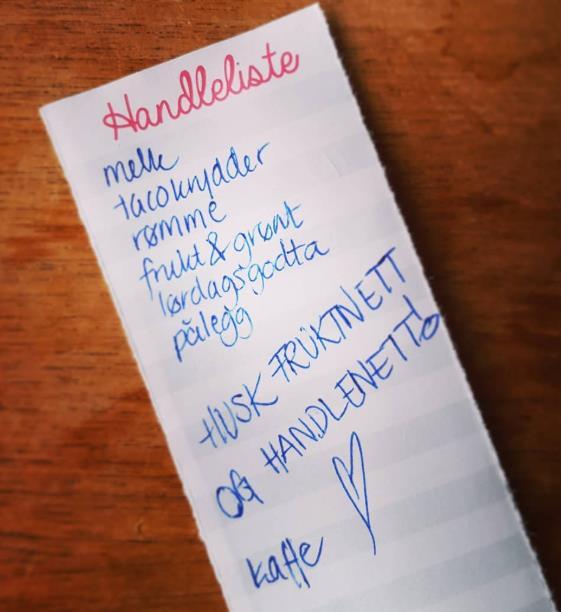 Handleliste
melk
tacokrydder
rømme
frukt & grønt
lørdagsgodta
pålegg
HUSK FRUKTNETT
OG HANDLENETT!
kaffe